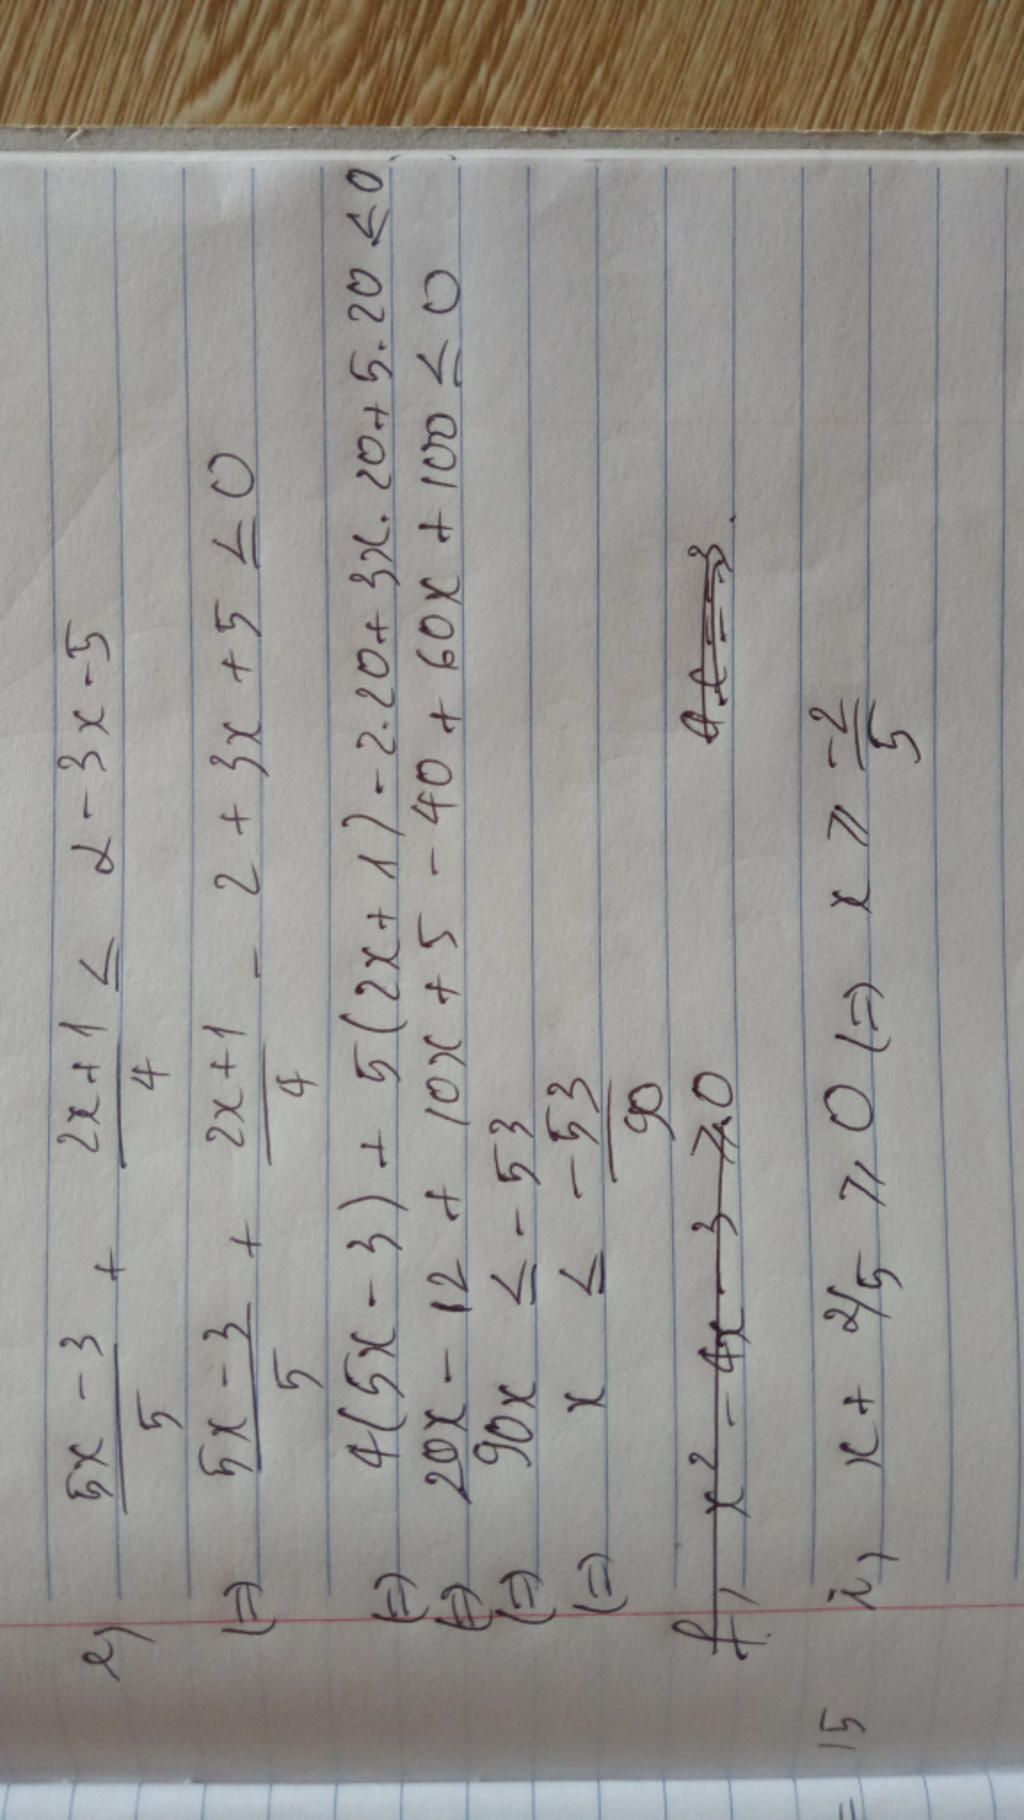 e, (5x - 3)/5 + (2x+1)/4 ≤ 2 - 3x - 5
(=) (5x - 3)/5 + (2x+1)/4 - 2 + 3x + 5 ≤ 0
(=) 4(5x - 3) + 5(2x + 1) - 2.20 + 3x.20 + 5.20 ≤ 0
(=) 20x - 12 + 10x + 5 - 40 + 60x + 100 ≤ 0
(=) 90x ≤ -53
(=) x ≤ -53/90
f, x² - 4x - 3 ≥ 0
15 i, x + 2/5 ≥ 0 (=) x ≥ -2/5